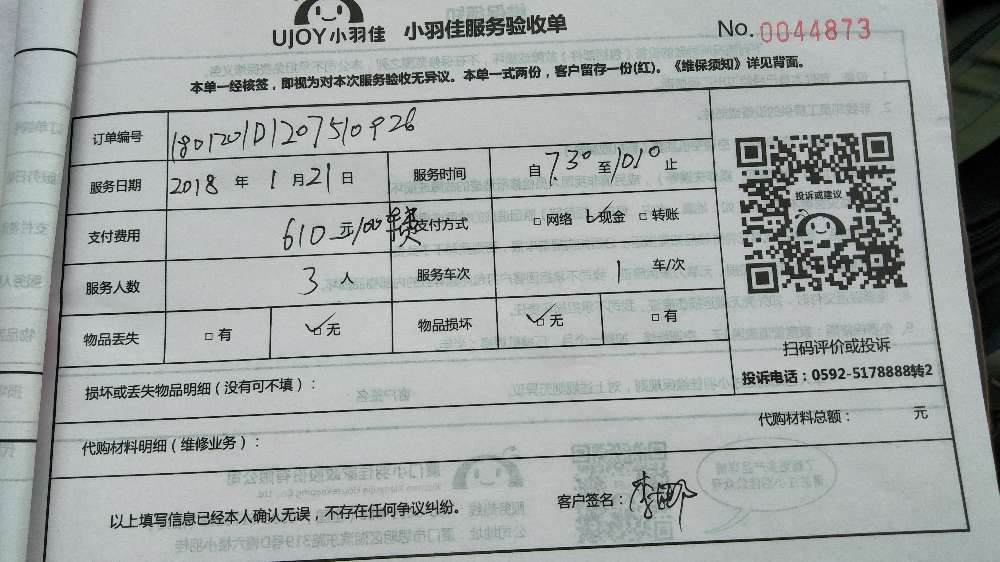 UJOY小羽佳 小羽佳服务验收单 No. 0044873
本单一经核签，即视为对本次服务验收无异议。本单一式两份，客户留存一份(红)。《维保须知》详见背面。
订单编号 1801201D1207510926
服务日期 2018 年 1 月 21 日 服务时间 自 7.30 至 1010 止
支付费用 610元/100 支付方式 □ 网络 ☑ 现金 □ 转账
服务人数 3 人 服务车次 1 车/次
物品丢失 □ 有 ☑ 无 物品损坏 ☑ 无 □ 有
投诉或建议
扫码评价或投诉
投诉电话：0592-5178888转2
损坏或丢失物品明细（没有可不填）：
代购材料明细（维修业务）： 代购材料总额： 元
以上填写信息已经本人确认无误，不存在任何争议纠纷。 客户签名：